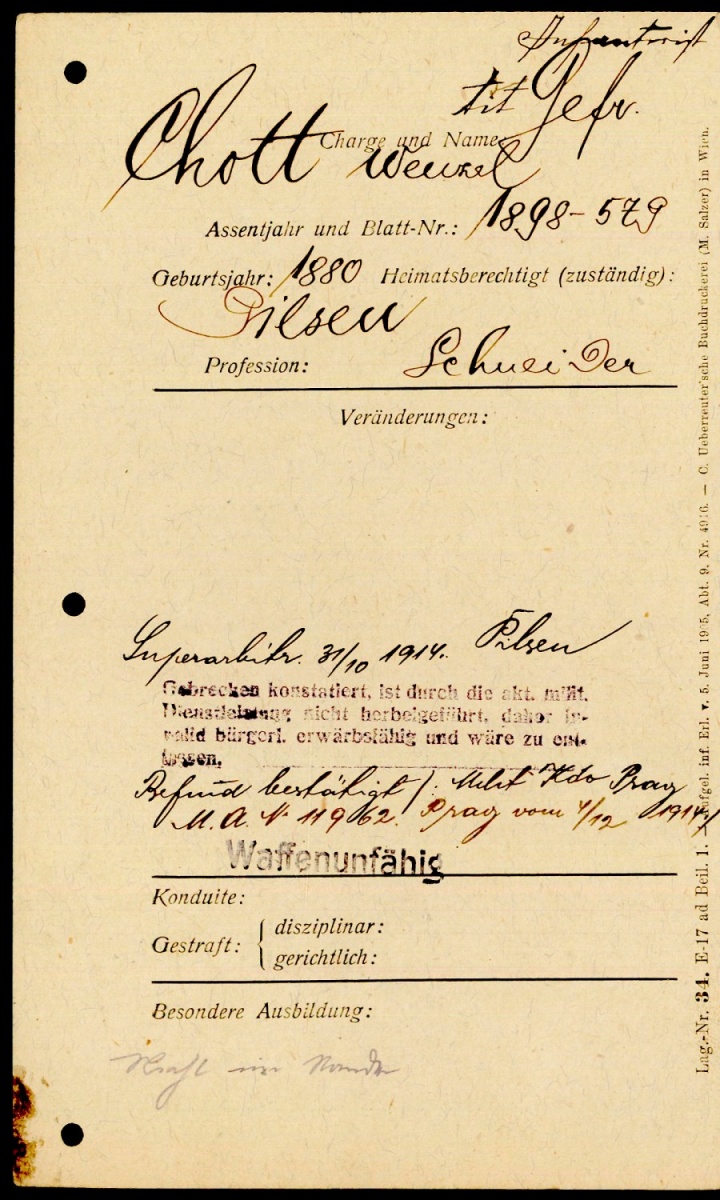 Infanterist
tit Gefr.
Charge und Name:
Chott Wenzel
Assentjahr und Blatt-Nr.: 1898-579
Geburtsjahr: 1880 Heimatsberechtigt (zuständig):
Pilsen
Profession: Schneider
Veränderungen:
Superarbitr. 31/10 1914. Pilsen
Gebrechen konstatiert, ist durch die akt. milit.
Dienstleistung nicht herbeigeführt, daher in-
valid bürgerl. erwärbsfähig und wäre zu ent-
lassen.
Befund bestätigt /: Milit Kdo Prag
M.A. N. 11962. Prag vom 4/12 1914/
Waffenunfähig
Konduite:
Gestraft: { disziplinar:
gerichtlich:
Besondere Ausbildung:
Nicht im Stande
Lag.-Nr. 34. E-17 ad Beil. 1. Aufgel. inf. Erl. v. 5. Juni 1905, Abt. 9, Nr. 4916. — C. Ueberreuter'sche Buchdruckerei (M. Salzer) in Wien.